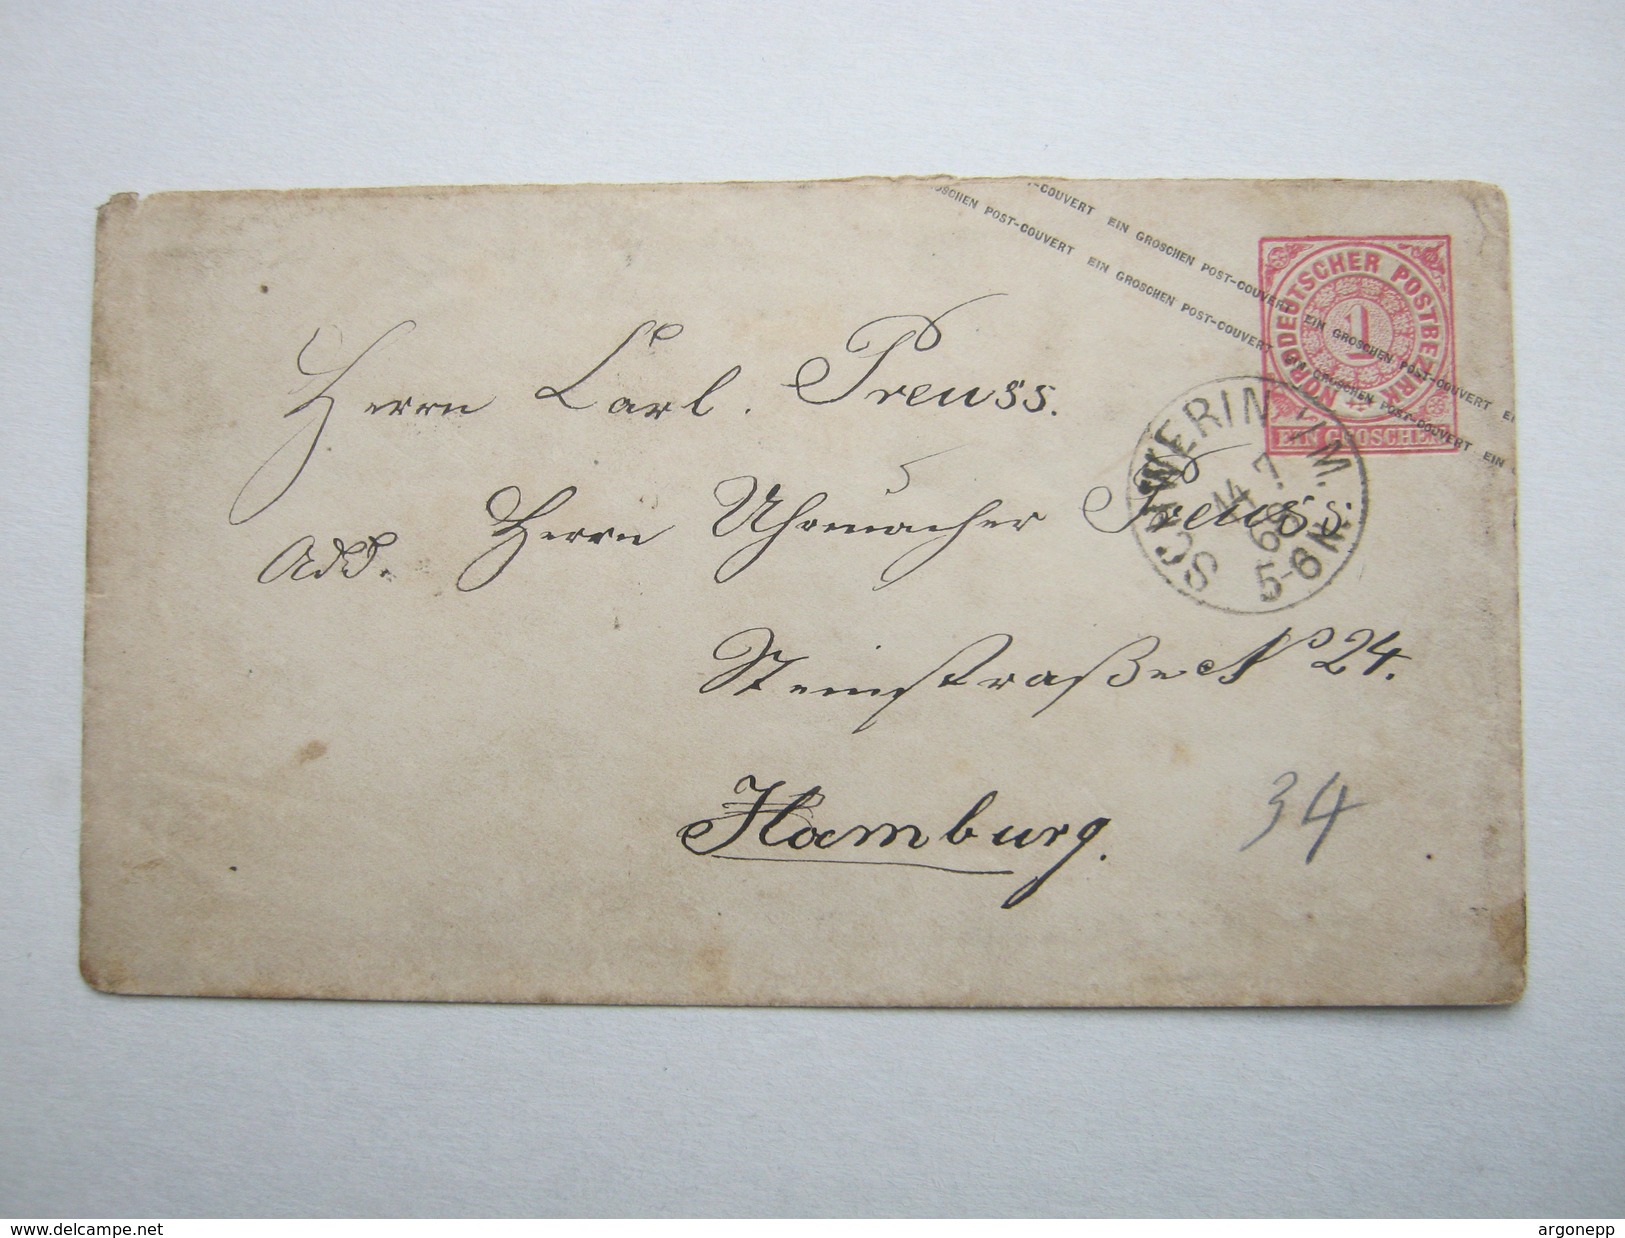 -COUVERT EIN GROSCHEN POST-COUVERT EIN GROSCHEN POST-COUVERT EI
OSCHEN POST-COUVERT EIN GROSCHEN POST-COUVERT EIN GROSCHEN POST-COUVERT EIN
NORDDEUTSCHER POSTBEZIRK
1
EIN GROSCHEN
SCHWERIN I/M.
14 7
68
5-6 N
Herrn Carl. Preuss.
Add. Herrn Uhrmacher Preuss.
Steinstraße No 24.
Hamburg.
34
www.delcampe.net
argonepp